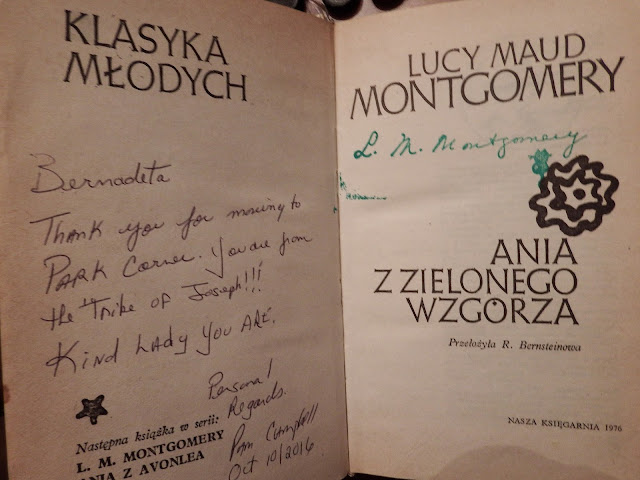 KLASYKA
MŁODYCH
Bernadeta
Thank you for moving to
PARK Corner. You are from
the "Tribe of Joseph!!!
KIND LADY YOU ARE.
Personal
Regards.
Pam Campbell
Oct 10/2016
Następna książka w serii:
L. M. MONTGOMERY
ANIA Z AVONLEA
LUCY MAUD
MONTGOMERY
L. M. Montgomery
ANIA
Z ZIELONEGO
WZGÓRZA
Przełożyła R. Bernsteinowa
NASZA KSIĘGARNIA 1976